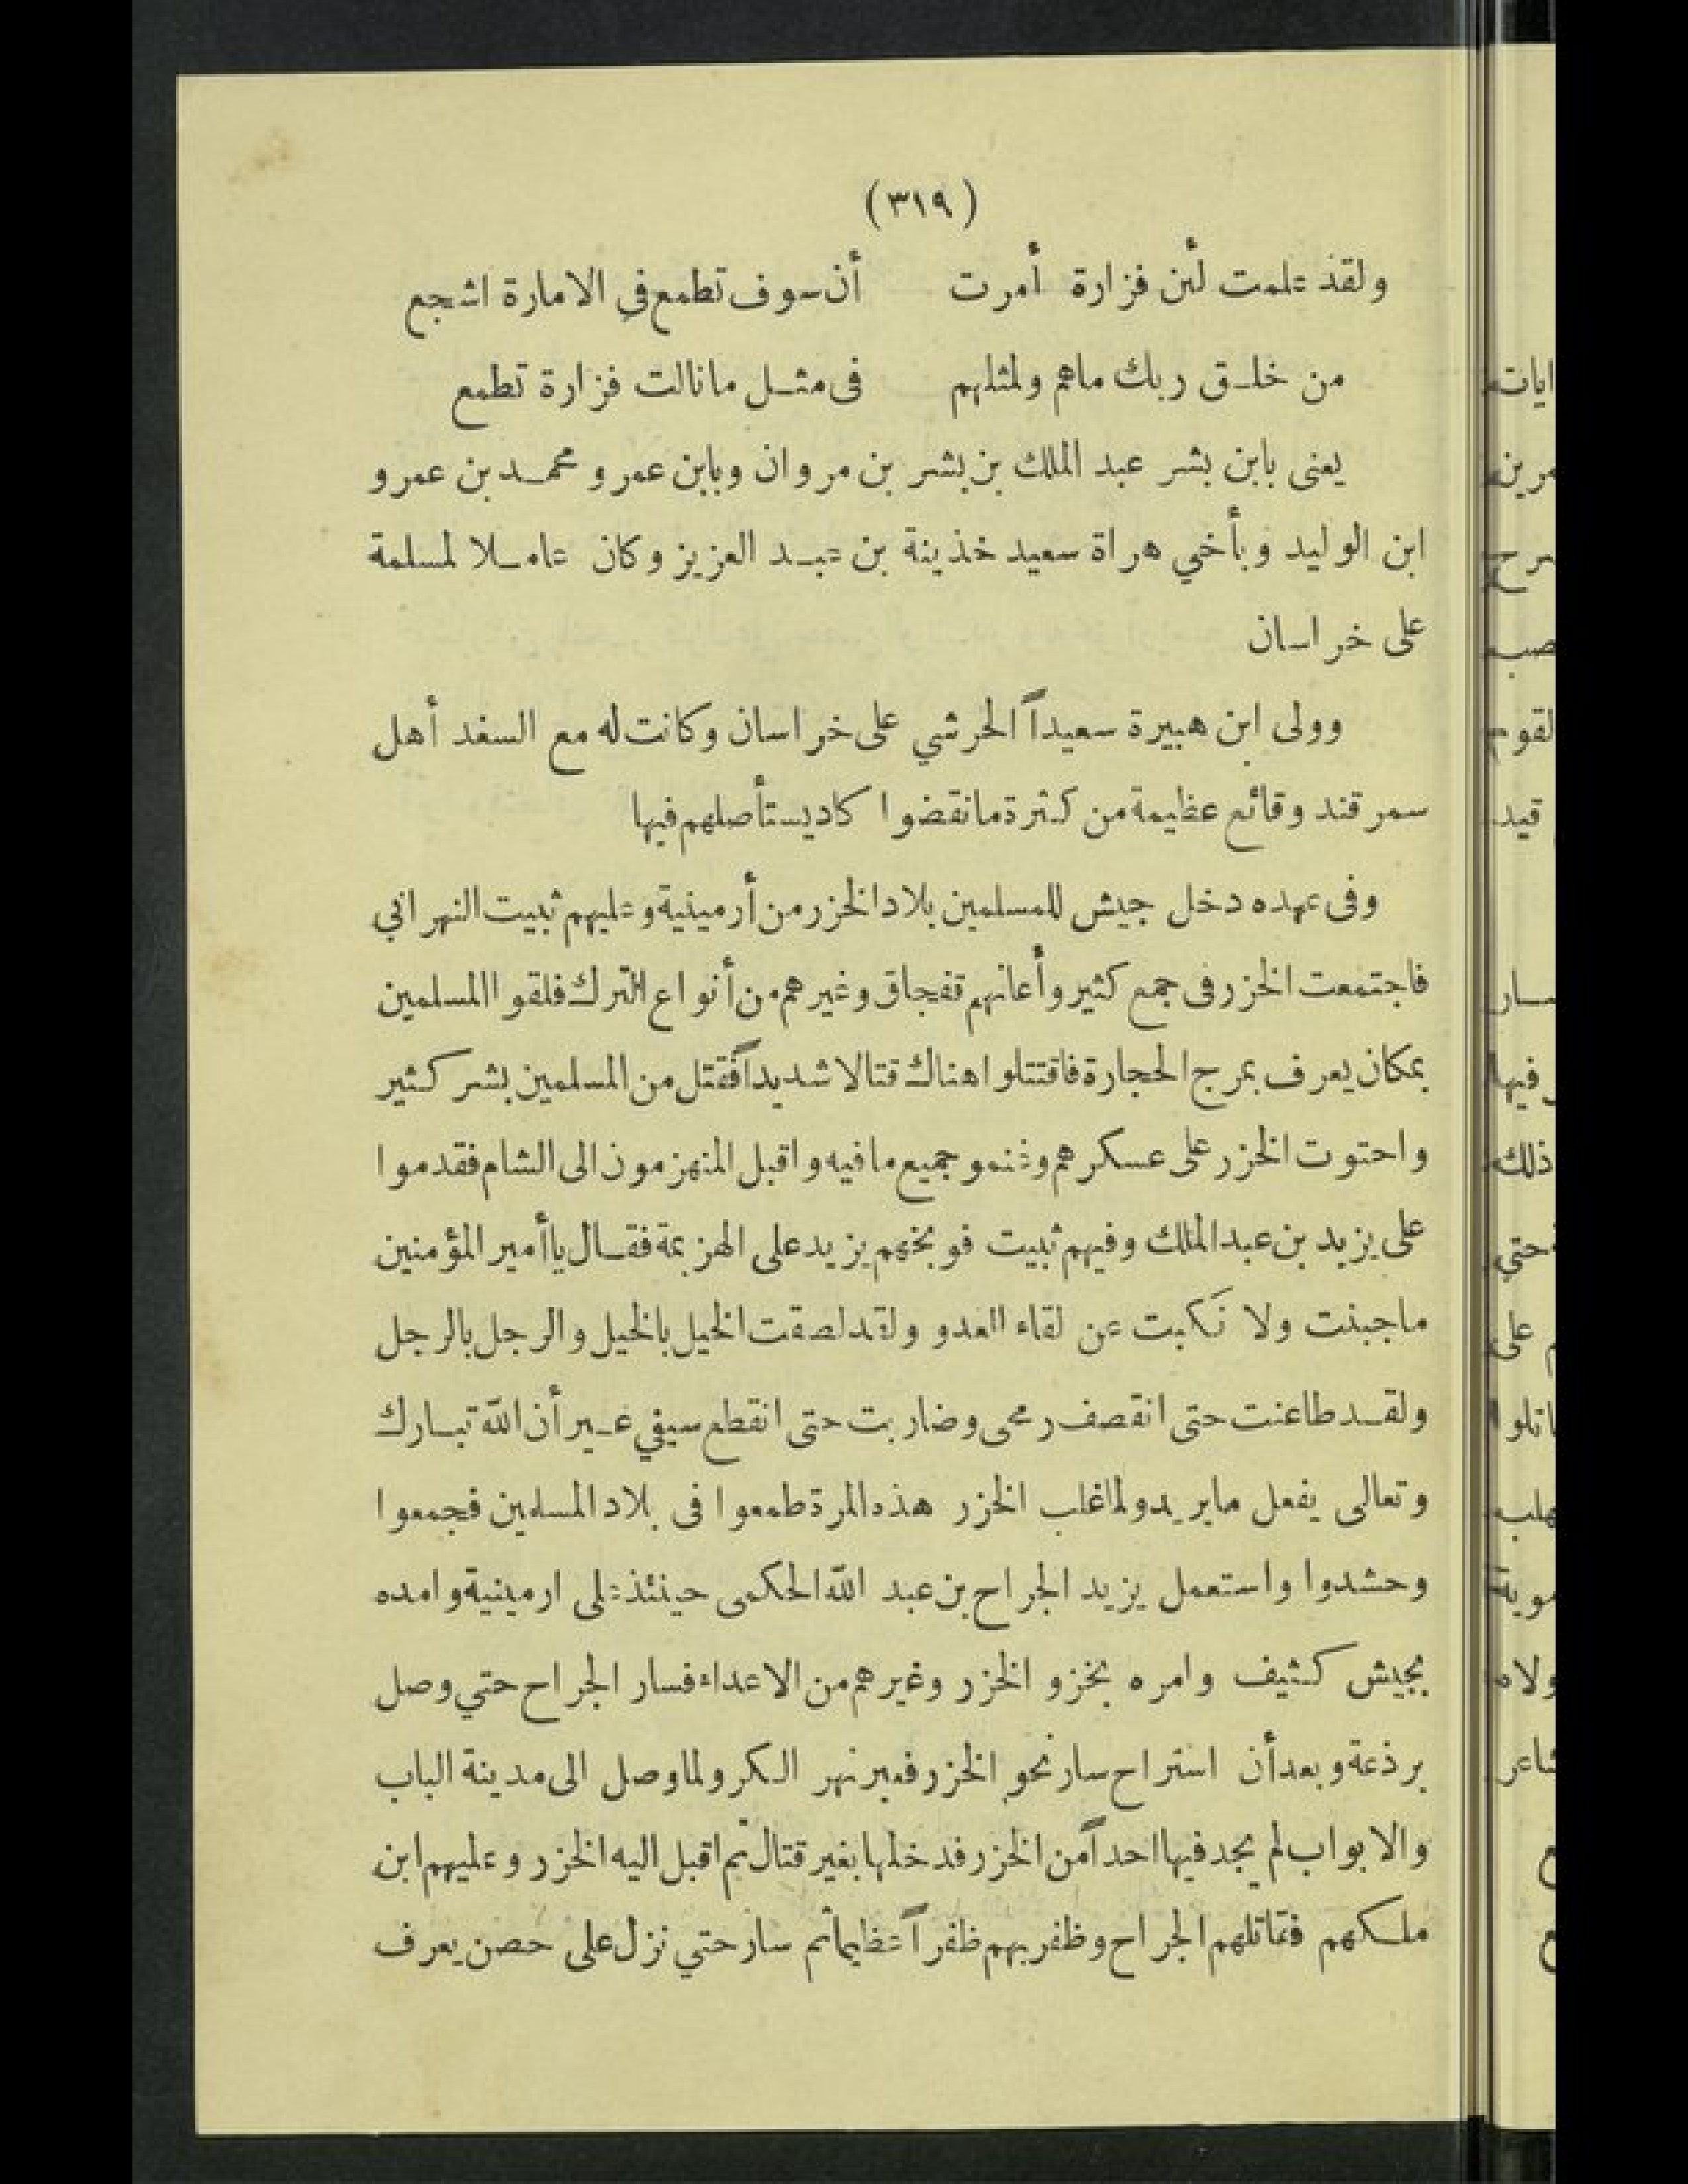 (٣١٩)
ولقد علمت لئن فزارة أمرت أن سوف تطمع في الامارة اشجع
من خلق ربك ماهم ولمثلهم فى مثل مانالت فزارة تطمع
يعنى بابن بشر عبد الملك بن بشر بن مروان وبابن عمرو محمد بن عمرو
ابن الوليد وبأخي هراة سعيد خذينة بن عبد العزيز وكان عاملا لمسلمة
على خراسان
وولى ابن هبيرة سعيداً الحرشي على خراسان وكانت له مع السغد أهل
سمرقند وقائع عظيمة من كثرة مانقضوا كاد يستأصلهم فيها
وفى عهده دخل جيش للمسلمين بلاد الخزر من أرمينية وعليهم ثبيت النهراني
فاجتمعت الخزر فى جمع كثير وأعانهم قفجاق وغيرهم من أنواع الترك فلقوا المسلمين
بمكان يعرف بمرج الحجارة فاقتتلوا هناك قتالا شديداً فقتل من المسلمين بشر كثير
واحتوت الخزر على عسكرهم وغنمو جميع مافيه واقبل المنهزمون الى الشام فقدموا
على يزيد بن عبد الملك وفيهم ثبيت فوبخهم يزيد على الهزيمة فقال ياأمير المؤمنين
ماجبنت ولا نَكبت عن لقاء العدو ولقد لصقت الخيل بالخيل والرجل بالرجل
ولقد طاعنت حتى انقصف رمحى وضاربت حتى انقطع سيفي غير أن الله تبارك
وتعالى يفعل مايريد ولما غلب الخزر هذه المرة طمعوا فى بلاد المسلمين فجمعوا
وحشدوا واستعمل يزيد الجراح بن عبد الله الحكمى حينئذ على ارمينية وامده
بجيش كثيف وامره بخزو الخزر وغيرهم من الاعداء فسار الجراح حتي وصل
برذعة وبعد أن استراح سار نحو الخزر فعبر نهر الكر ولما وصل الى مدينة الباب
والابواب لم يجد فيها احداً من الخزر فدخلها بغير قتال ثم اقبل اليه الخزر وعليهم ابن
ملكهم فقاتلهم الجراح وظفر بهم ظفراً عظيما ثم سار حتي نزل على حصن يعرف